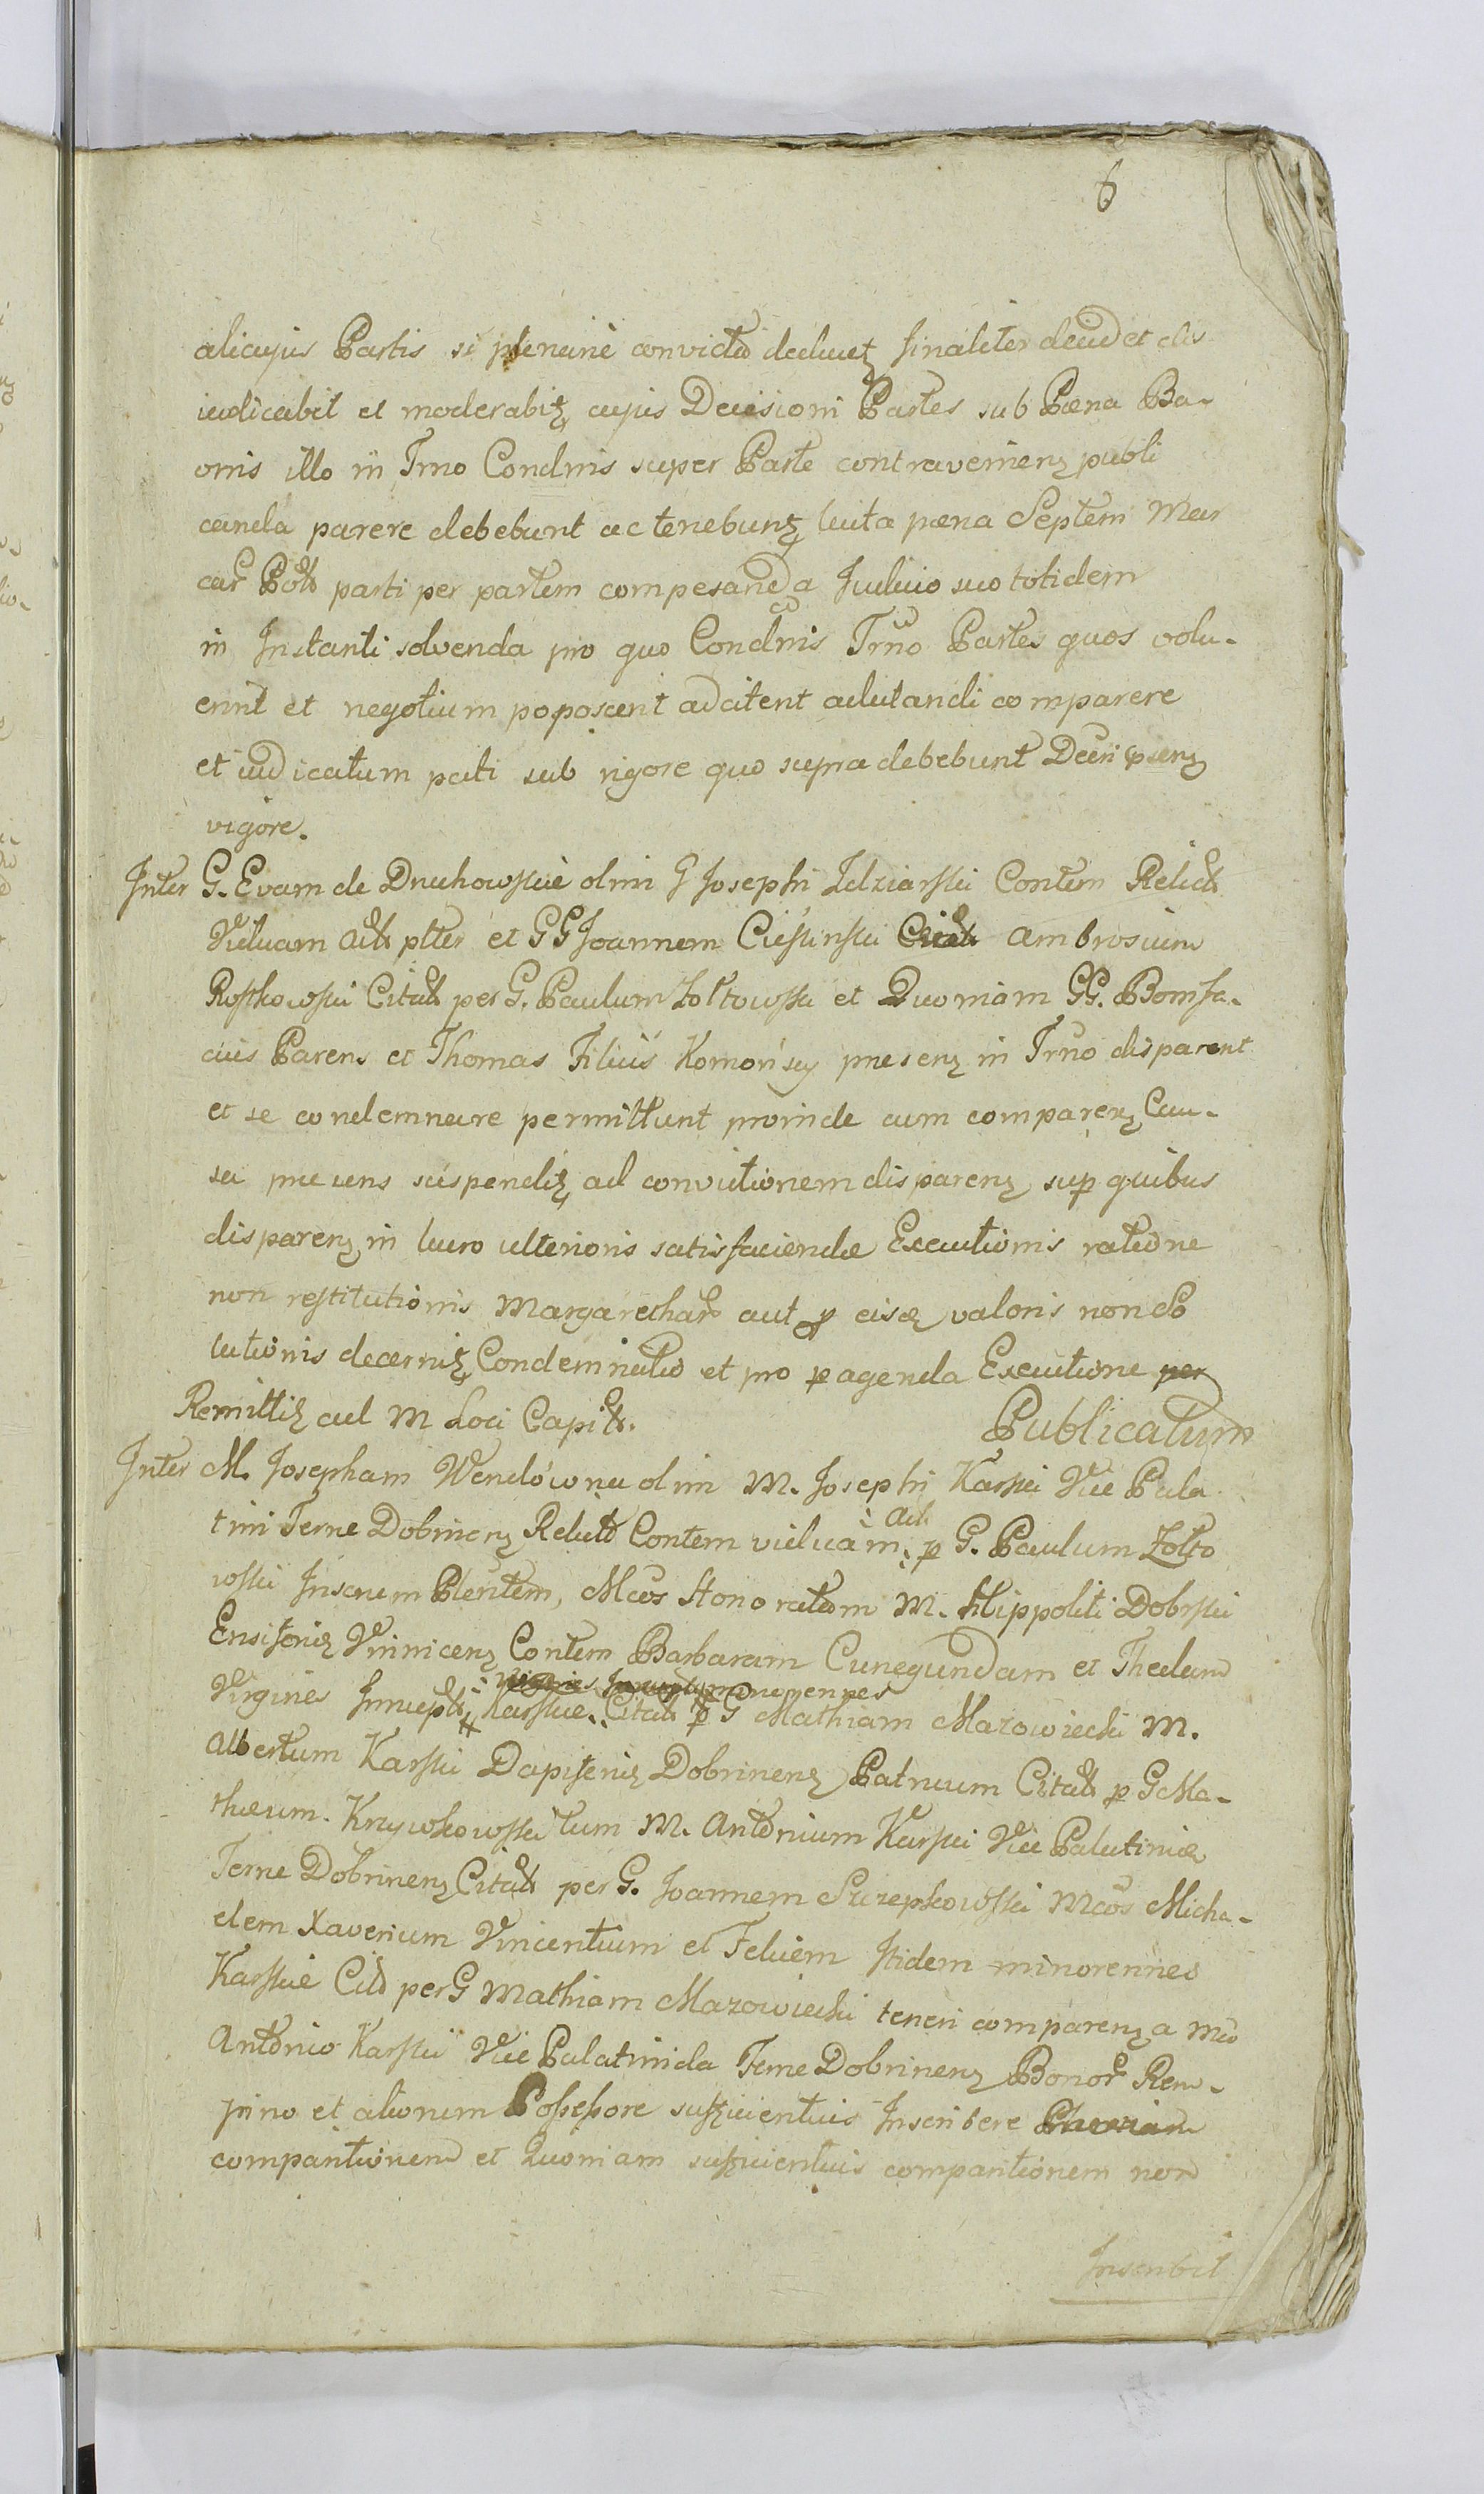 6
alicujus Partis si plenariè convicta deducetz finaliter decidet dis
iudicabit et moderabitz cujus Decisioni Partes sub Pæna Ba-
onis illo in Trno Condnis super Parte contravenienz publi
canda parere debebunt ac tenebuntz luita pæna Septem Mar
car Pol parti per partem compesanda Judicio suo totidem
in Instanti solvenda pro quo Condnis Trno Partes quos volu-
erint et negotium poposcerit adcitent adcitandi comparere
et iudicatum pati sub rigore quo supra debebunt Decri psenz
vigore.
Inter G. Evam de Druchowskie olim G Josephi Zdziarski Contem Relict
Viduam Act plter et GG Joannem Ciesinski Citat Ambrosium
Rostkowski Citat per G. Paulum Zołtowski et Quoniam GG. Bonifa-
cius Parens et Thomas Filius Komońscy presenz in Trno disparent
et se condemnare permittunt proinde cum comparenz Cau-
sa precens suspenditz ad convictionem disparenz sup quibus
disparenz in lucro ulterioris satisfaciendæ Executionis ratione
non restitutionis Margarethar aut p eisd valoris non so
lutionis decernitz Condemnatio et pro peragenda Executione per
Remittitz ad M Loci Capit.
Publicatum
Inter M. Josepham Wendówna olim M. Josephi Karski Vice Pala
tini Terræ Dobrinenz Relict Contem viduam Act p G. Paulum Zołto
wski Inscrum Plentem, Mcos Honoratam M. Hippoliti Dobrski
Ensiferidz Vinnicenz Contem Barbaram Cunegundam et Theclam
Virgines Innupt minorennes Karskie Citat p G Mathiam Mazowiecki M.
Albertum Karski Dapiferidz Dobrinenz Patruum Citat p G Ma-
thæum Krzywkowski tum M. Antonium Karski Vice Palatinid
Terræ Dobrinenz Citat per G. Joannem Szczepkowski Mcos Micha-
elem Xaverium Vincentium et Felicem Itidem minorennes
Karskie Cit per G Mathiam Mazowiecki teneri comparenz a Mco
Antonio Karski Vice Palatinida Terræ Dobrinenz Bonor Rem-
pino et aliorum Possessore sufficientius Inscribere
comparitionem et Quoniam sufficientius comparitionem non
Inscribit